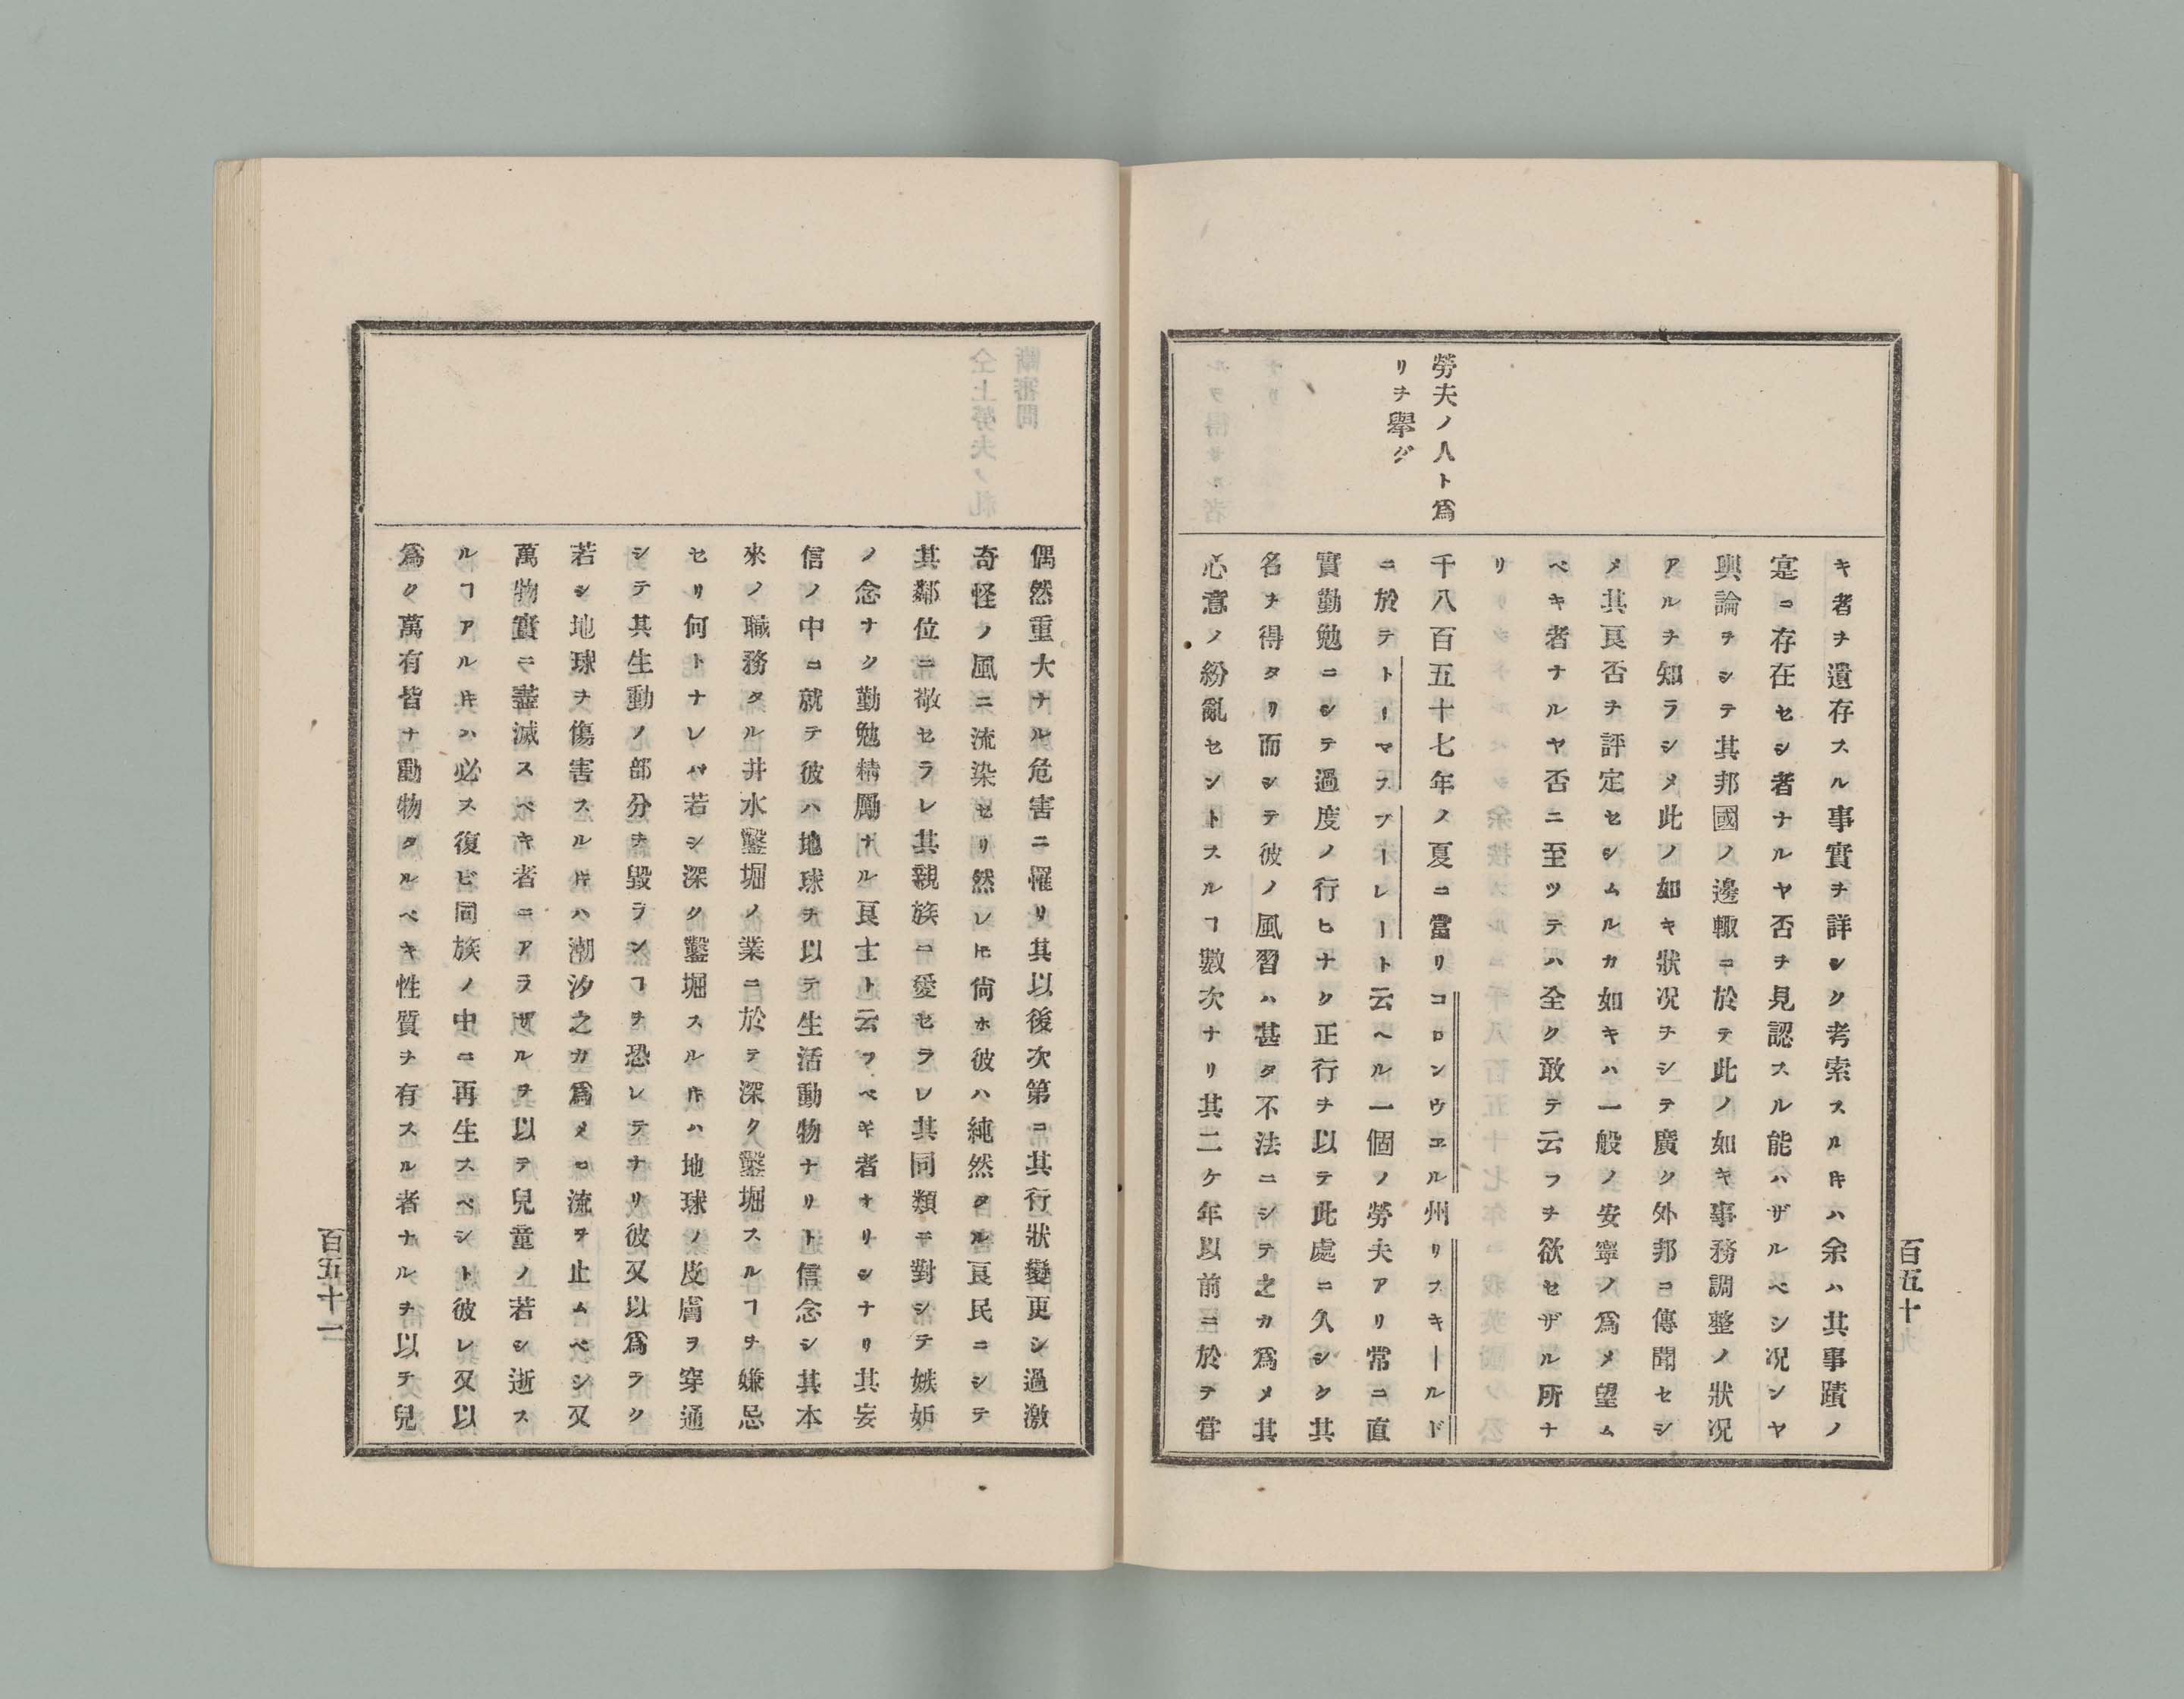 百五十
勞夫ノ人ト爲
リヲ擧グ
キ者ヲ遺存スル事實ヲ詳シク考索スルヰハ余ハ其事蹟ノ
寔ニ存在セシ者ナルヤ否ヲ見認スル能ハザルベシ况ンヤ
輿論ヲシテ其邦國ノ邊輙ニ於テ此ノ如キ事務調整ノ狀况
アルヲ知ラシメ此ノ如キ狀况ヲシテ廣ク外邦ニ傳聞セシ
メ其良否ヲ評定セシムルカ如キハ一般ノ安寧ノ爲メ望ム
ベキ者ナルヤ否ニ至ツテハ全ク敢テ云フヲ欲セザル所ナ
リ
千八百五十七年ノ夏ニ當リコロンウヱル州リスキールド
ニ於テトーマスプーレート云ヘル一個ノ勞夫アリ常ニ直
實勤勉ニシテ過度ノ行ヒナク正行ヲ以テ此處ニ久シク其
名ヲ得タリ而シテ彼ノ風習ハ甚タ不法ニシテ之カ爲メ其
心意ノ紛亂セントスルヿ數次ナリ其二ケ年以前ニ於テ嘗
偶然重大ナル危害ニ罹リ其以後次第ニ其行狀變更シ過激
奇怪ノ風ニ流染セリ然レ𪜈尙ホ彼ハ純然タル良民ニシテ
其鄰位ニ敬セラレ其親族ニ愛セラレ其同類ニ對シテ嫉妬
ノ念ナク勤勉精勵ナル良士ト云フベキ者ナリシナリ其妄
信ノ中ニ就テ彼ハ地球ヲ以テ生活動物ナリト信念シ其本
來ノ職務タル井水鑿堀ノ業ニ於テ深ク鑿堀スルヿヲ嫌忌
セリ何トナレバ若シ深ク鑿堀スルヰハ地球ノ皮膚ヲ穿通
シテ其生動ノ部分ヲ毀ランヿヲ恐レテナリ彼又以爲ラク
若シ地球ヲ傷害スルヰハ潮汐之カ爲メニ流ヲ止ムベシ又
萬物實ニ盡滅スベキ者ニアラザルヲ以テ兒童ノ若シ逝ス
ルヿアルヰハ必ス復ビ同族ノ中ニ再生スベシト彼レ又以
爲ク萬有皆ナ動物タルベキ性質ヲ有スル者ナルヲ以テ兒
百五十一